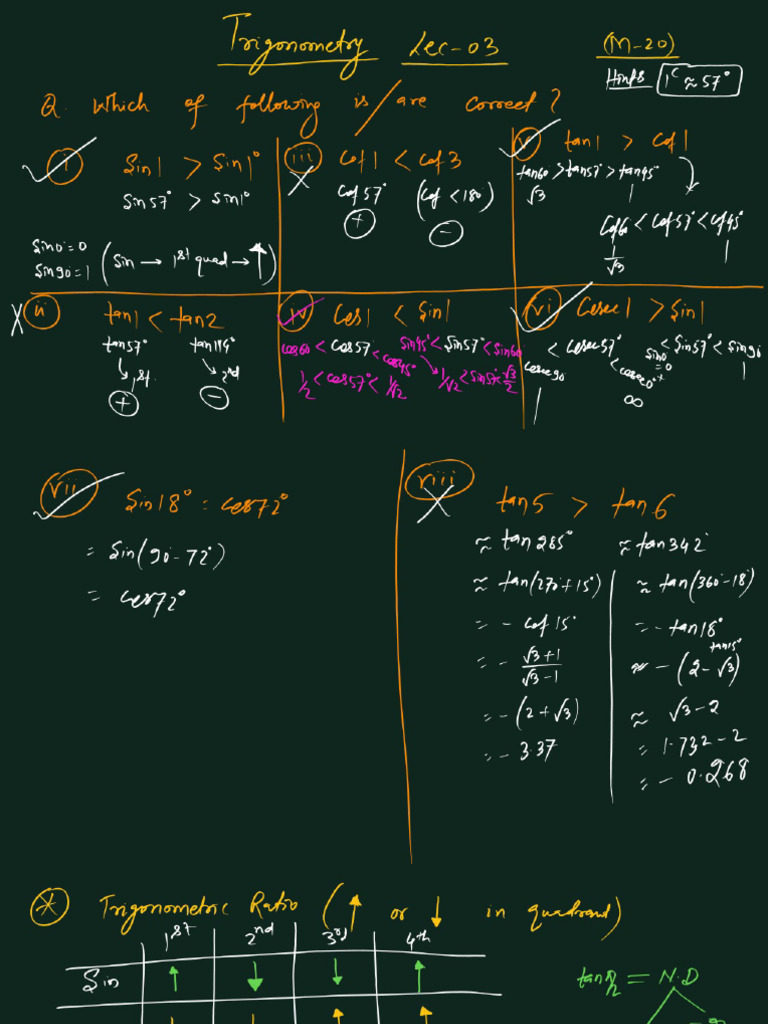 Trigonometry Lec-03 (M-20)
Hint8 1ᶜ ≈ 57°
Q. Which of following is/are correct?
(i) Sin1 > Sin1°
Sin57° > Sin1°
Sin0° = 0
Sin90 = 1 (Sin → 1st quad → ↑)
(iii) Cot1 < Cot3
Cot57° (Cot <180)
+ -
(v) tan1 > Cot1
tan60 > tan57° > tan45°
√3 1
Cot60 < Cot57° < Cot45°
1/√3 1
(ii) tan1 < tan2
tan57° tan114°
1st. 2nd
+ -
(iv) Cos1 < Sin1
cos60 < cos57 < cos45° Sin45° < Sin57° < Sin60
1/2 < cos57° < 1/√2 1/√2 < Sin57° < √3/2
(vi) Cosec1 > Sin1
cosec90 < Cosec57° < cosec0°⁺ Sin0 = 0 < Sin57° < Sin90
1 ∞ 1
(vii) Sin18° = cos72°
= Sin(90-72°)
= cos72°
(viii) tan5 > tan6
≈ tan285° ≈ tan342°
≈ tan(270+15°) ≈ tan(360-18)
= - cot15° = - tan18°
= - √3+1/√3-1 ≈ - (2-√3) tan15°
= - (2+√3) ≈ √3-2
= - 3.37 = 1.732-2
= - 0.268
* Trigonometric Ratio (↑ or ↓ in quadrant)
1st 2nd 3rd 4th
Sin ↑ ↓ ↓ ↑
tan π/2 = N.D